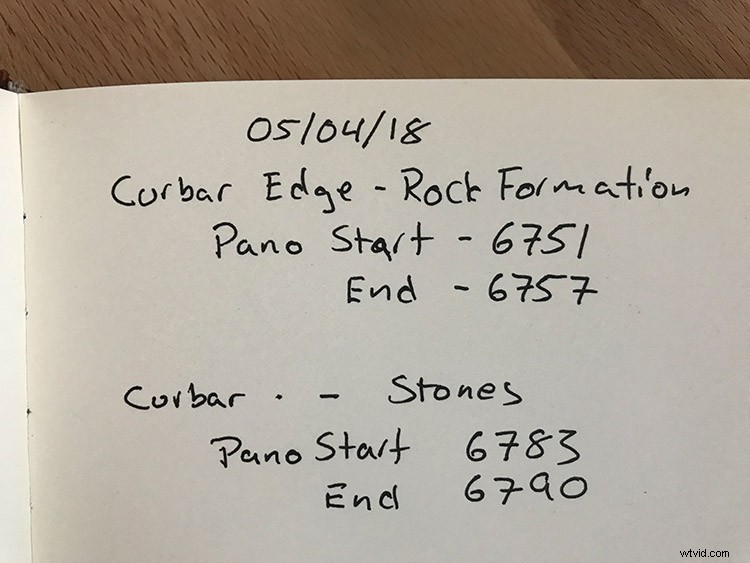 05/04/18
Curbar Edge - Rock Formation
Pano Start - 6751
End - 6757
Curbar . - Stones
Pano Start 6783
End 6790
wtvid.com